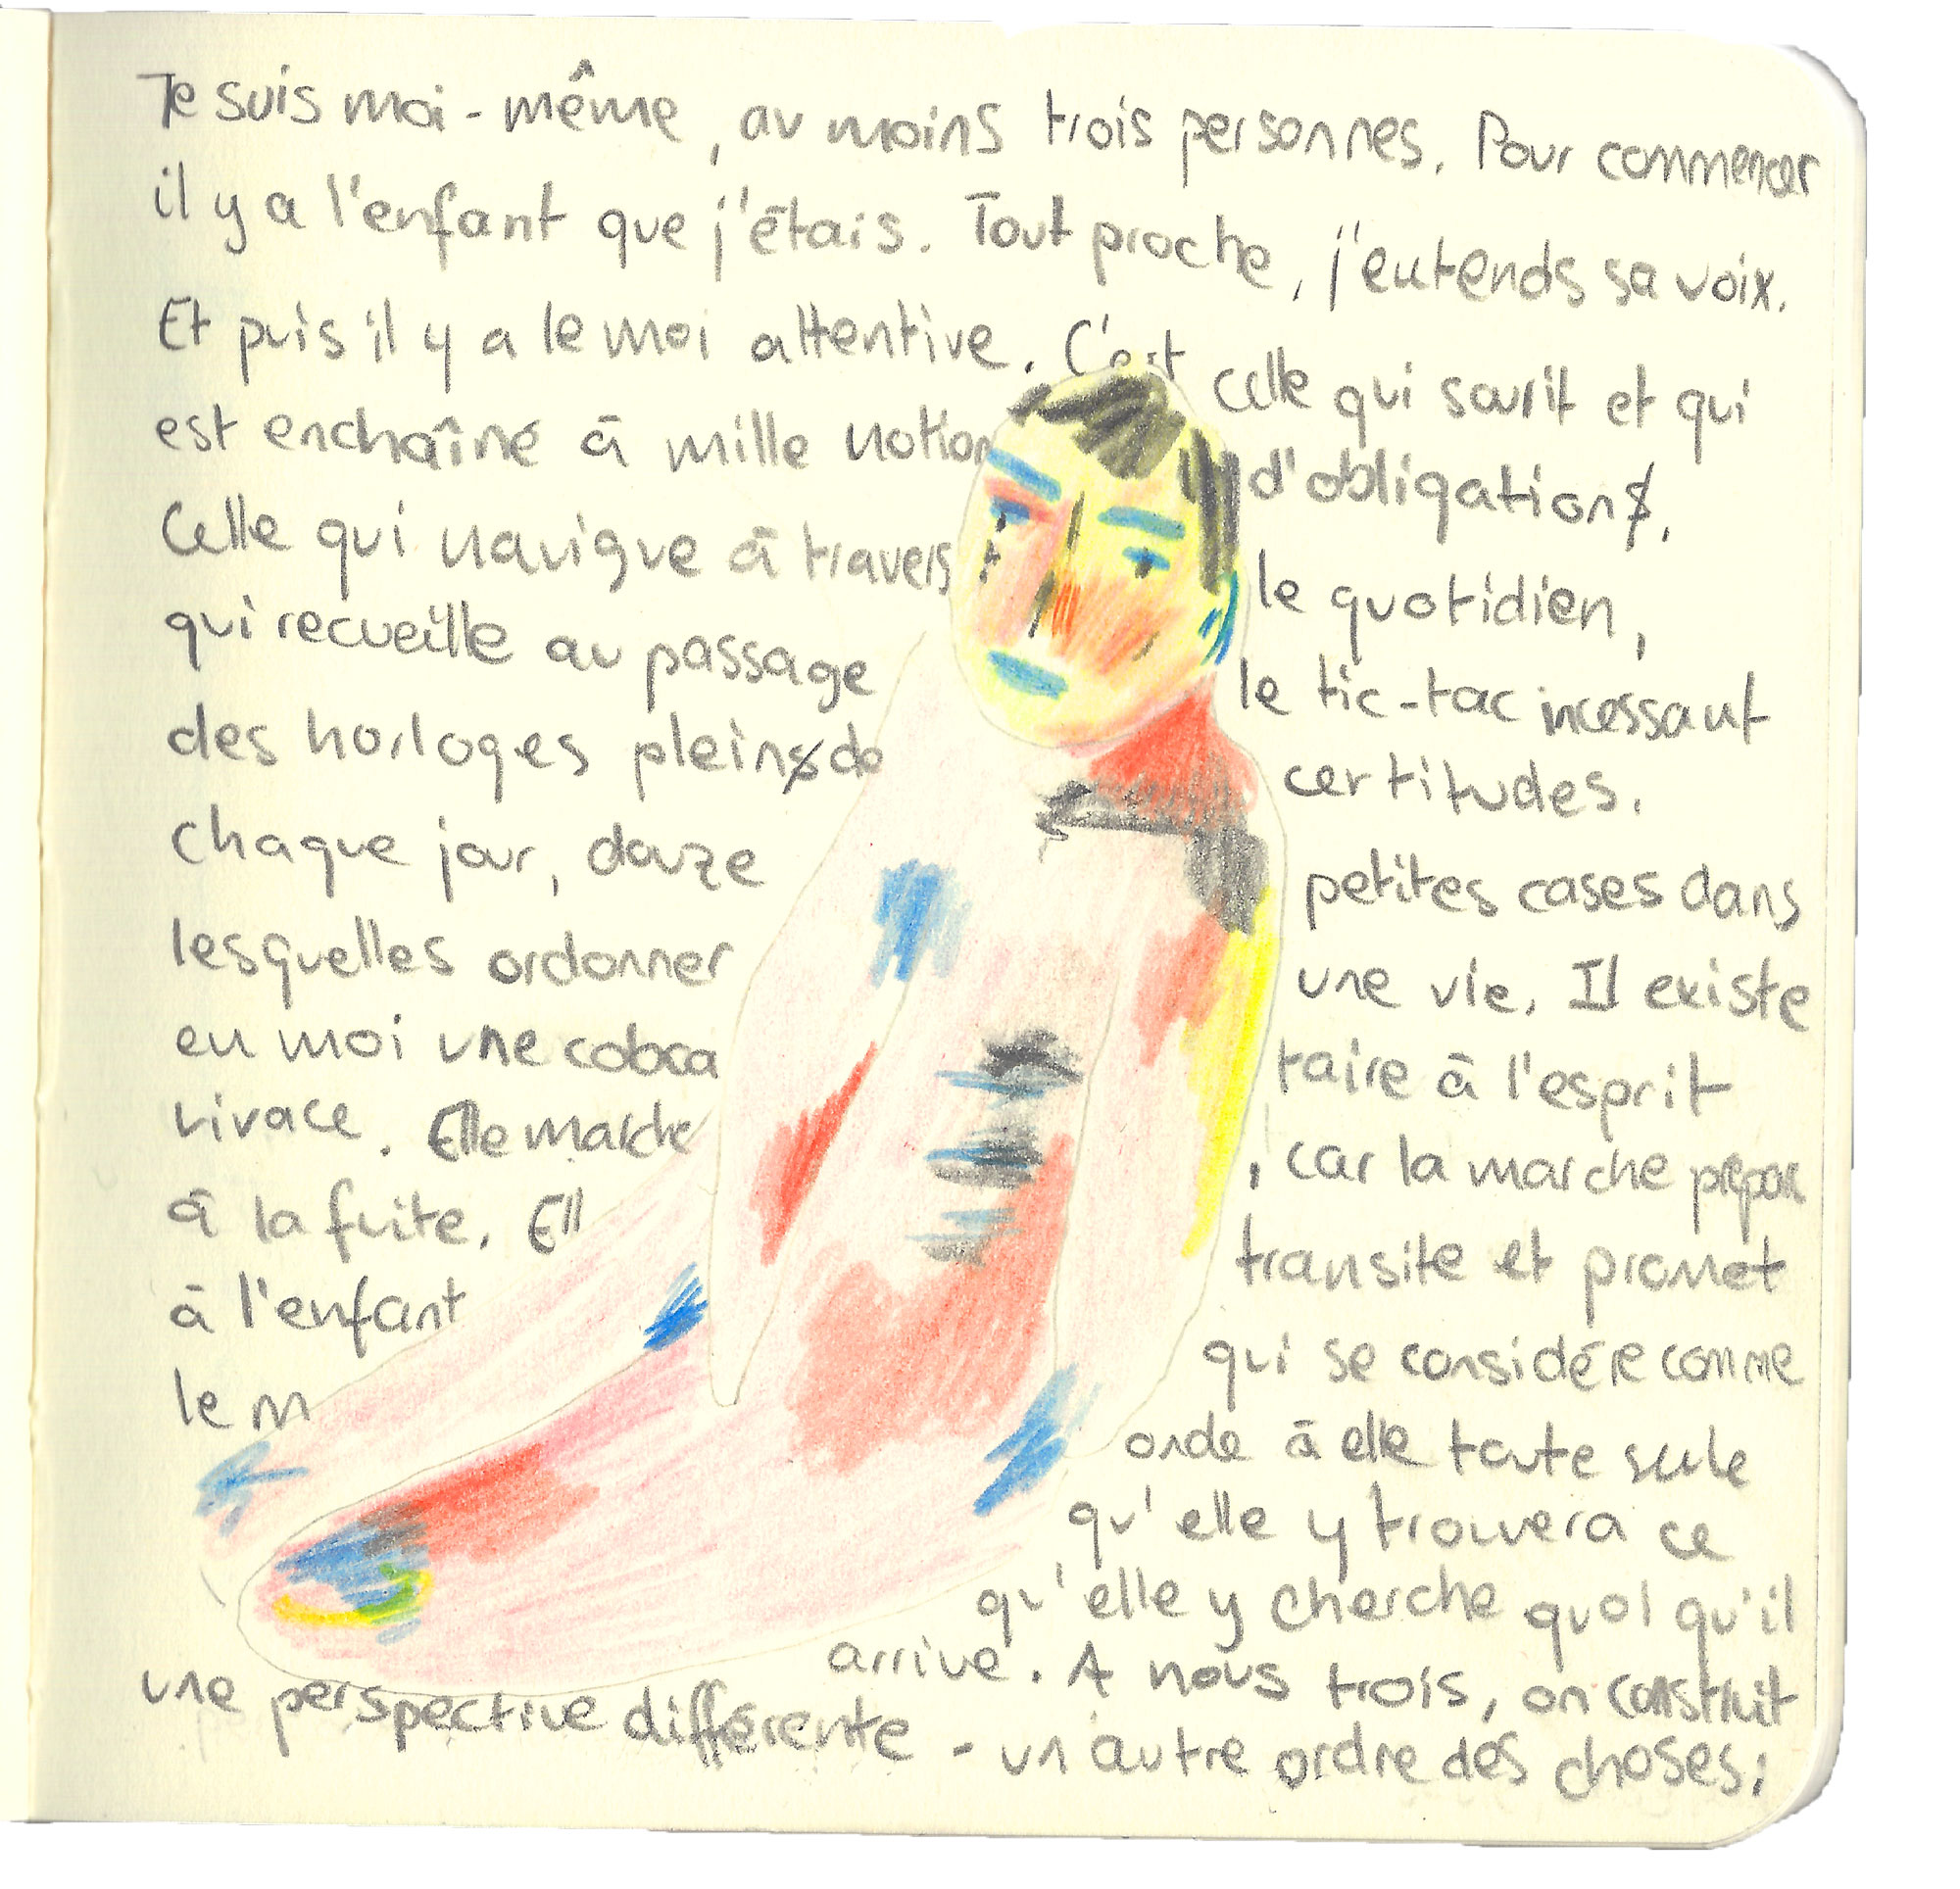 Je suis moi-même, au moins trois personnes. Pour commencer
il y a l'enfant que j'étais. Tout proche, j'entends sa voix.
Et puis il y a le moi attentive. C'est celle qui sourit et qui
est enchaîné à mille notion d'obligations.
Celle qui navigue à travers le quotidien,
qui recueille au passage le tic-tac incessant
des horloges pleins de certitudes.
chaque jour, douze petites cases dans
lesquelles ordonner une vie. Il existe
en moi une cobra taire à l'esprit
vivace. Elle marche, car la marche prépare
à la fuite. Ell transite et promet
à l'enfant qui se considère comme
le m onde à elle toute seule
qu'elle y trouvera ce
qu'elle y cherche quoi qu'il
arrive. A nous trois, on construit
une perspective différente - un autre ordre des choses;